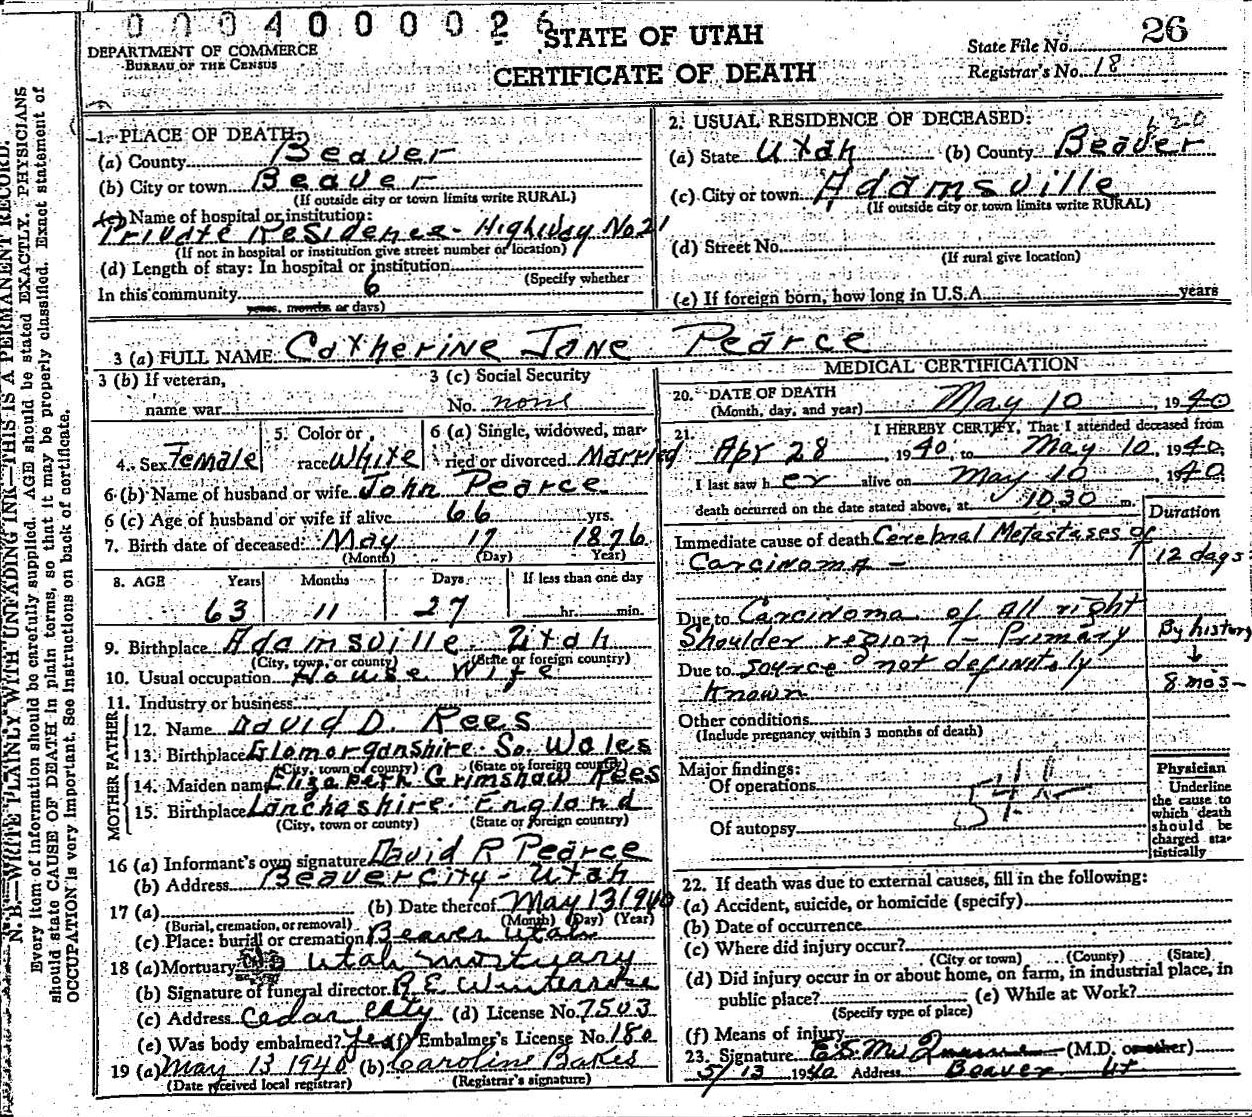 00040000026
STATE OF UTAH
CERTIFICATE OF DEATH
DEPARTMENT OF COMMERCE
BUREAU OF THE CENSUS
26
State File No.
Registrar's No. 18
N. B.—WRITE PLAINLY WITH UNFADING INK—THIS IS A PERMANENT RECORD.
Every item of information should be carefully supplied. AGE should be stated EXACTLY. PHYSICIANS
should state CAUSE OF DEATH in plain terms, so that it may be properly classified. Exact statement of
OCCUPATION is very important. See instructions on back of certificate.
1. PLACE OF DEATH:
(a) County Beaver
(b) City or town Beaver
(If outside city or town limits write RURAL)
(c) Name of hospital or institution:
Private Residence - Highway No 21
(If not in hospital or institution give street number or location)
(d) Length of stay: In hospital or institution
(Specify whether
In this community 6
years, months or days)
2. USUAL RESIDENCE OF DECEASED:
(a) State Utah (b) County Beaver
(c) City or town Adamsville
(If outside city or town limits write RURAL)
(d) Street No.
(If rural give location)
(e) If foreign born, how long in U.S.A. years
3 (a) FULL NAME Catherine Jane Pearce
3 (b) If veteran,
name war
3 (c) Social Security
No. none
4. Sex Female
5. Color or
race White
6 (a) Single, widowed, mar-
ried or divorced Married
6 (b) Name of husband or wife John Pearce
6 (c) Age of husband or wife if alive 66 yrs.
7. Birth date of deceased: May 17 1876
(Month) (Day) Year)
8. AGE Years Months Days If less than one day
63 11 27 hr. min.
9. Birthplace Adamsville Utah
(City, town, or county) (State or foreign country)
10. Usual occupation House Wife
11. Industry or business
FATHER
12. Name David D. Rees
13. Birthplace Glomorganshire So. Wales
(City, town or county) (State or foreign country)
MOTHER
14. Maiden name Elizabeth Grimshaw Rees
15. Birthplace Lanchashire England
(City, town or county) (State or foreign country)
16 (a) Informant's own signature David R Pearce
(b) Address Beaver City - Utah
17 (a) (b) Date thereof May 13 1940
(Burial, cremation, or removal) (Month) (Day) (Year)
(c) Place: burial or cremation Beaver Utah
18 (a) Mortuary Utah Mortuary
(b) Signature of funeral director R.E.
(c) Address Cedar City (d) License No. 7503
(e) Was body embalmed? Yes (f) Embalmer's License No. 180
19 (a) May 13 1940 (b) Caroline Bakes
(Date received local registrar) (Registrar's signature)
MEDICAL CERTIFICATION
20. DATE OF DEATH
(Month, day, and year) May 10, 1940
21. I HEREBY CERTIFY, That I attended deceased from
Apr 28, 1940, to May 10, 1940
I last saw her alive on May 10, 1940
death occurred on the date stated above, at 10.30 m.
Duration
Immediate cause of death Cerebral Metastases of
Carcinoma - 12 days
Due to Carcinoma of all right
Shoulder region - Primary By history
Due to source not definitely
known 8 mos -
Other conditions
(Include pregnancy within 3 months of death)
Major findings:
Of operations
Of autopsy
Physician
Underline
the cause to
which death
should be
charged sta-
tistically
22. If death was due to external causes, fill in the following:
(a) Accident, suicide, or homicide (specify)
(b) Date of occurrence
(c) Where did injury occur?
(City or town) (County) (State)
(d) Did injury occur in or about home, on farm, in industrial place, in
public place? (e) While at Work?
(Specify type of place)
(f) Means of injury
23. Signature E.S. (M.D. or other)
5/13 1940 Address Beaver Ut